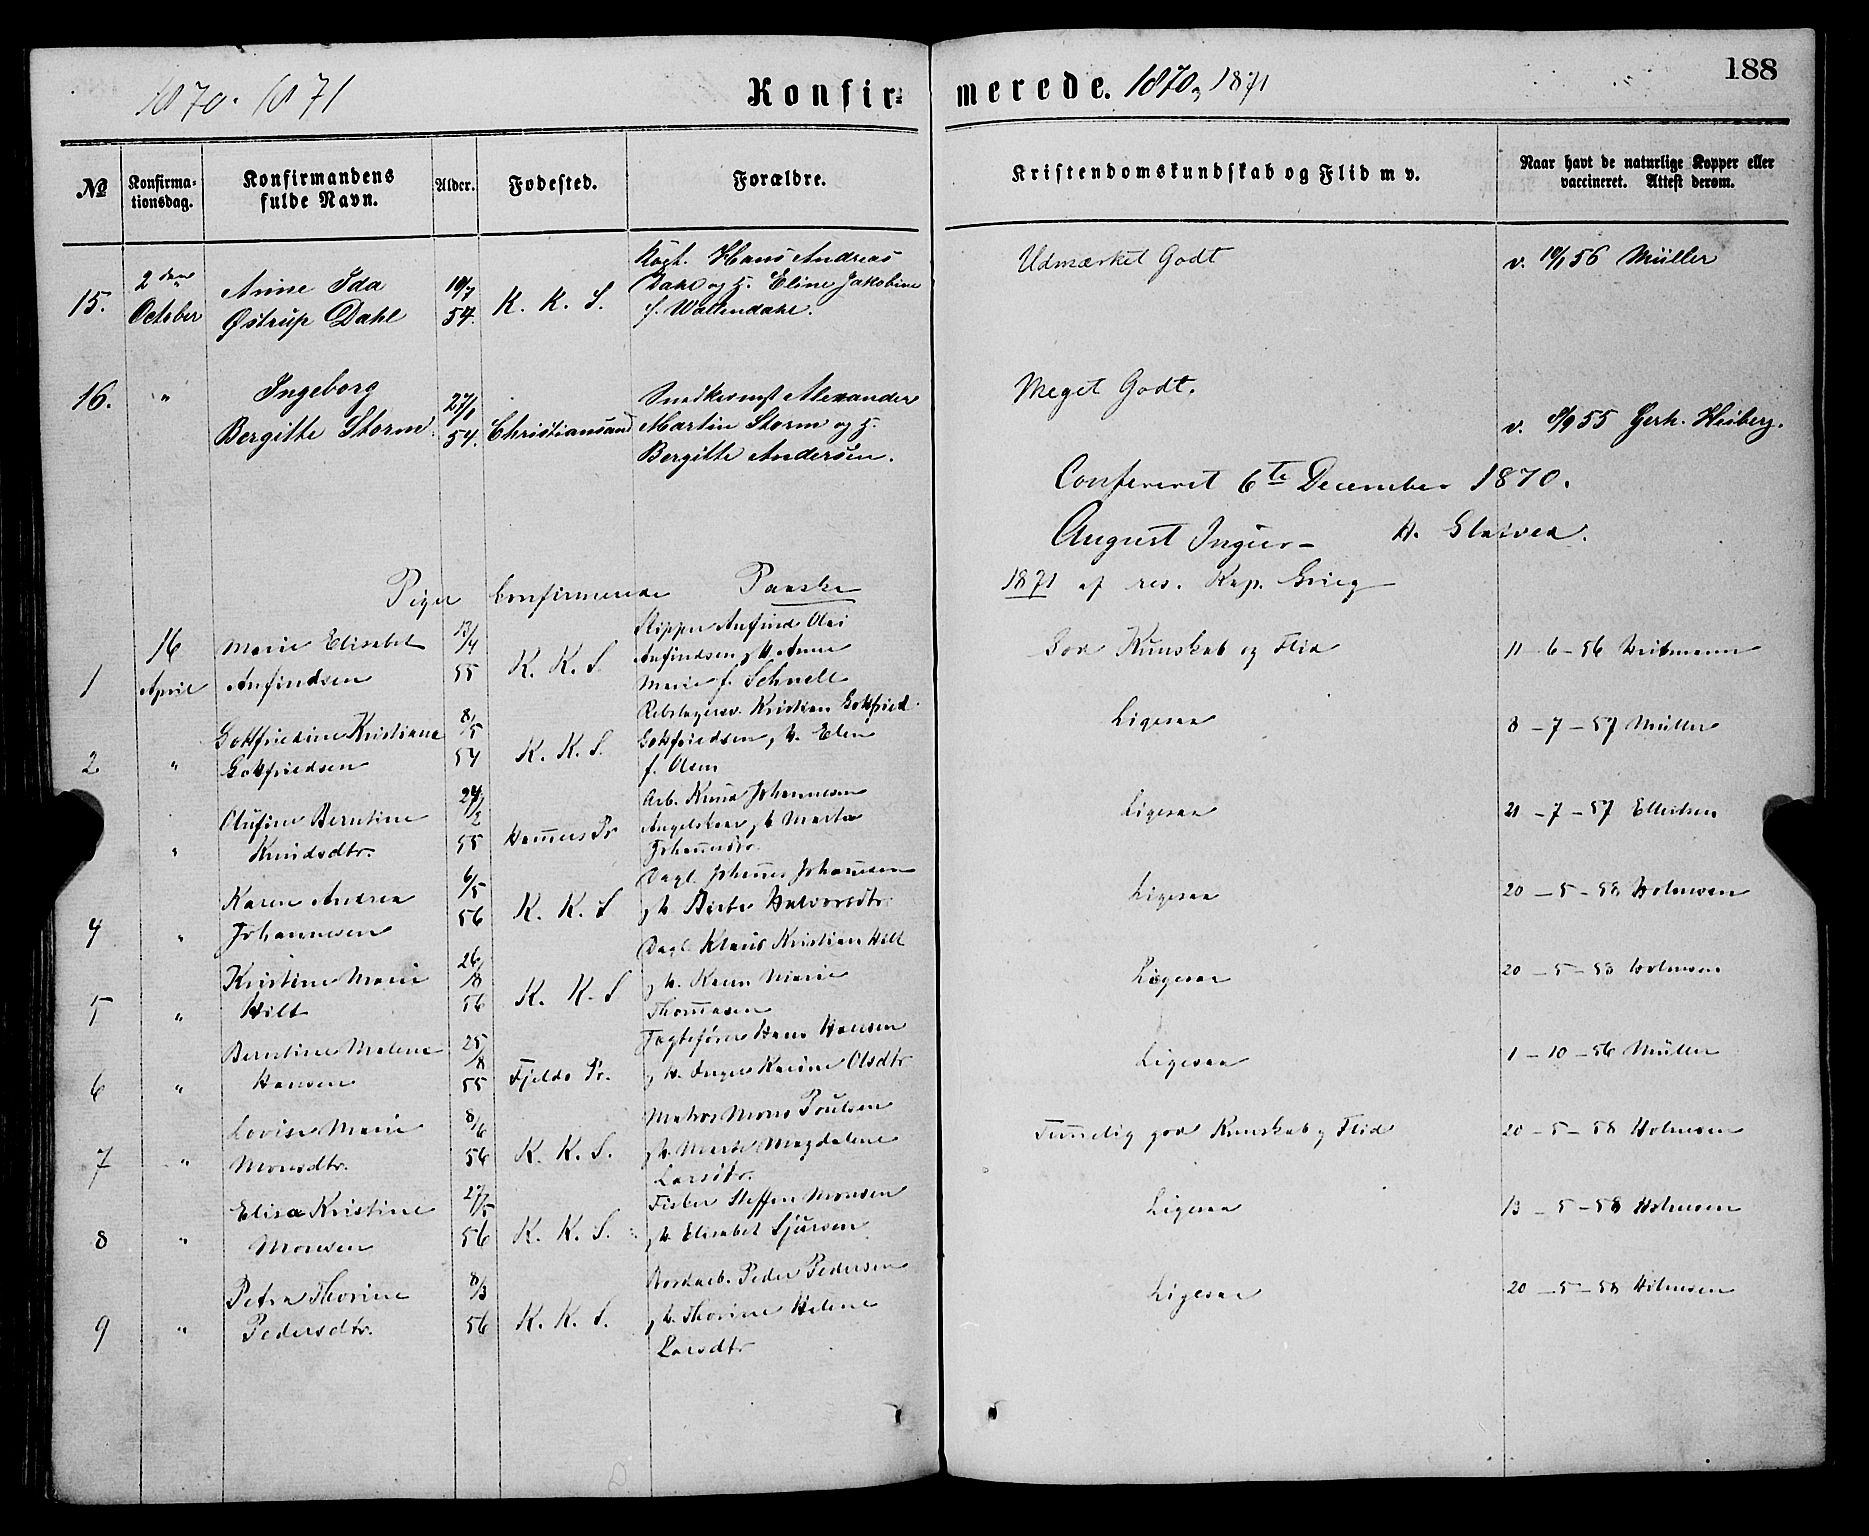 1870. 1871
Konfir=
merede. 1870, 1871
188
№
Konfirma-
tionsdag.
Konfirmandens
fulde Navn.
Alder.
Fødested.
Forældre.
Kristendomskundskab og Flid m v.
Naar havt de naturlige Kopper eller
vaccineret. Attest derom.
15.
2den
October
Anne Ida
Østrup Dahl
54.
K. K. S.
Hans Andreas
Dahl og H. Eline Jakobine
f. Wallendahl.
Udmærket Godt
v. 56 Müller
16.
"
Ingeborg
Bergitte Storm
27/1
54.
Christiansand
Snedkermst Alexander
Martin Storm og H.
Bergitte Andersen.
Meget Godt.
v. 8/9 55 Gerh.
Confereret 6te December 1870.
August Ingier
H.
Piger Confirmerede Paaske
1871 af res. Kap. Grieg
1
16
April
Marie Elisabet
Anfindsen
13/4
55
K. K. S
Skipper Anfind Olai
Anfindsen, H. Anne
Marie f. Schnell
God Kunskab og Flid
11-6-56
2
"
Gotfriedine Kristiane
Gotfriedsen
8/5
54
K. K. S.
Rebslagersv. Kristian Gotfried
Gotfriedsen, H. Elen
f. Olsen
Ligesaa
8-7-57 Müller
"
Olufine Berntine
Knudsdtr.
24/2
55
Hammers Pr
Arb. Knud Johannesen
H. Marta
Johannesdtr.
Ligesaa
21-7-57 Ellertsen
4
"
Karen Andrea
Johannesen
6/5
56
K. K. S
Dagl. Johannes Johannesen
H. Halvorsdtr.
Ligesaa
20-5-58 Holmsen
5
"
Kristine Marie
Hilt
26/8
56
K. K. S
Dagl. Klaus Kristian Hilt
H. Karen Marie
Thomasen
Ligesaa
20-5-58 Holmsen
6
"
Berntine Malene
Hansen
25/8
55
Fjelds Pr.
Jagtefører Hans Hansen
H. Inger Karine Olsdtr
Ligesaa
1-10-56 Müller
7
"
Lovise Marie
Monsdtr.
8/6
56
K. K. S.
Matros Mons Poulsen
H. Marte Magdalene
Larsdtr.
Temmelig god Kunskab og Flid
20-5-58 Holmsen
8
"
Elisa Kristine
Monsen
27/5
56
K. K. S.
Fisker Steffen Monsen
H. Elisabet Sjursen
Ligesaa
13-5-58 Holmsen
9
"
Petra Thorine
Pedersdtr.
8/3
56
K. K. S.
Peder Pedersen
H. Thorine Helene
Larsdtr
Ligesaa
20-5-58 Holmsen